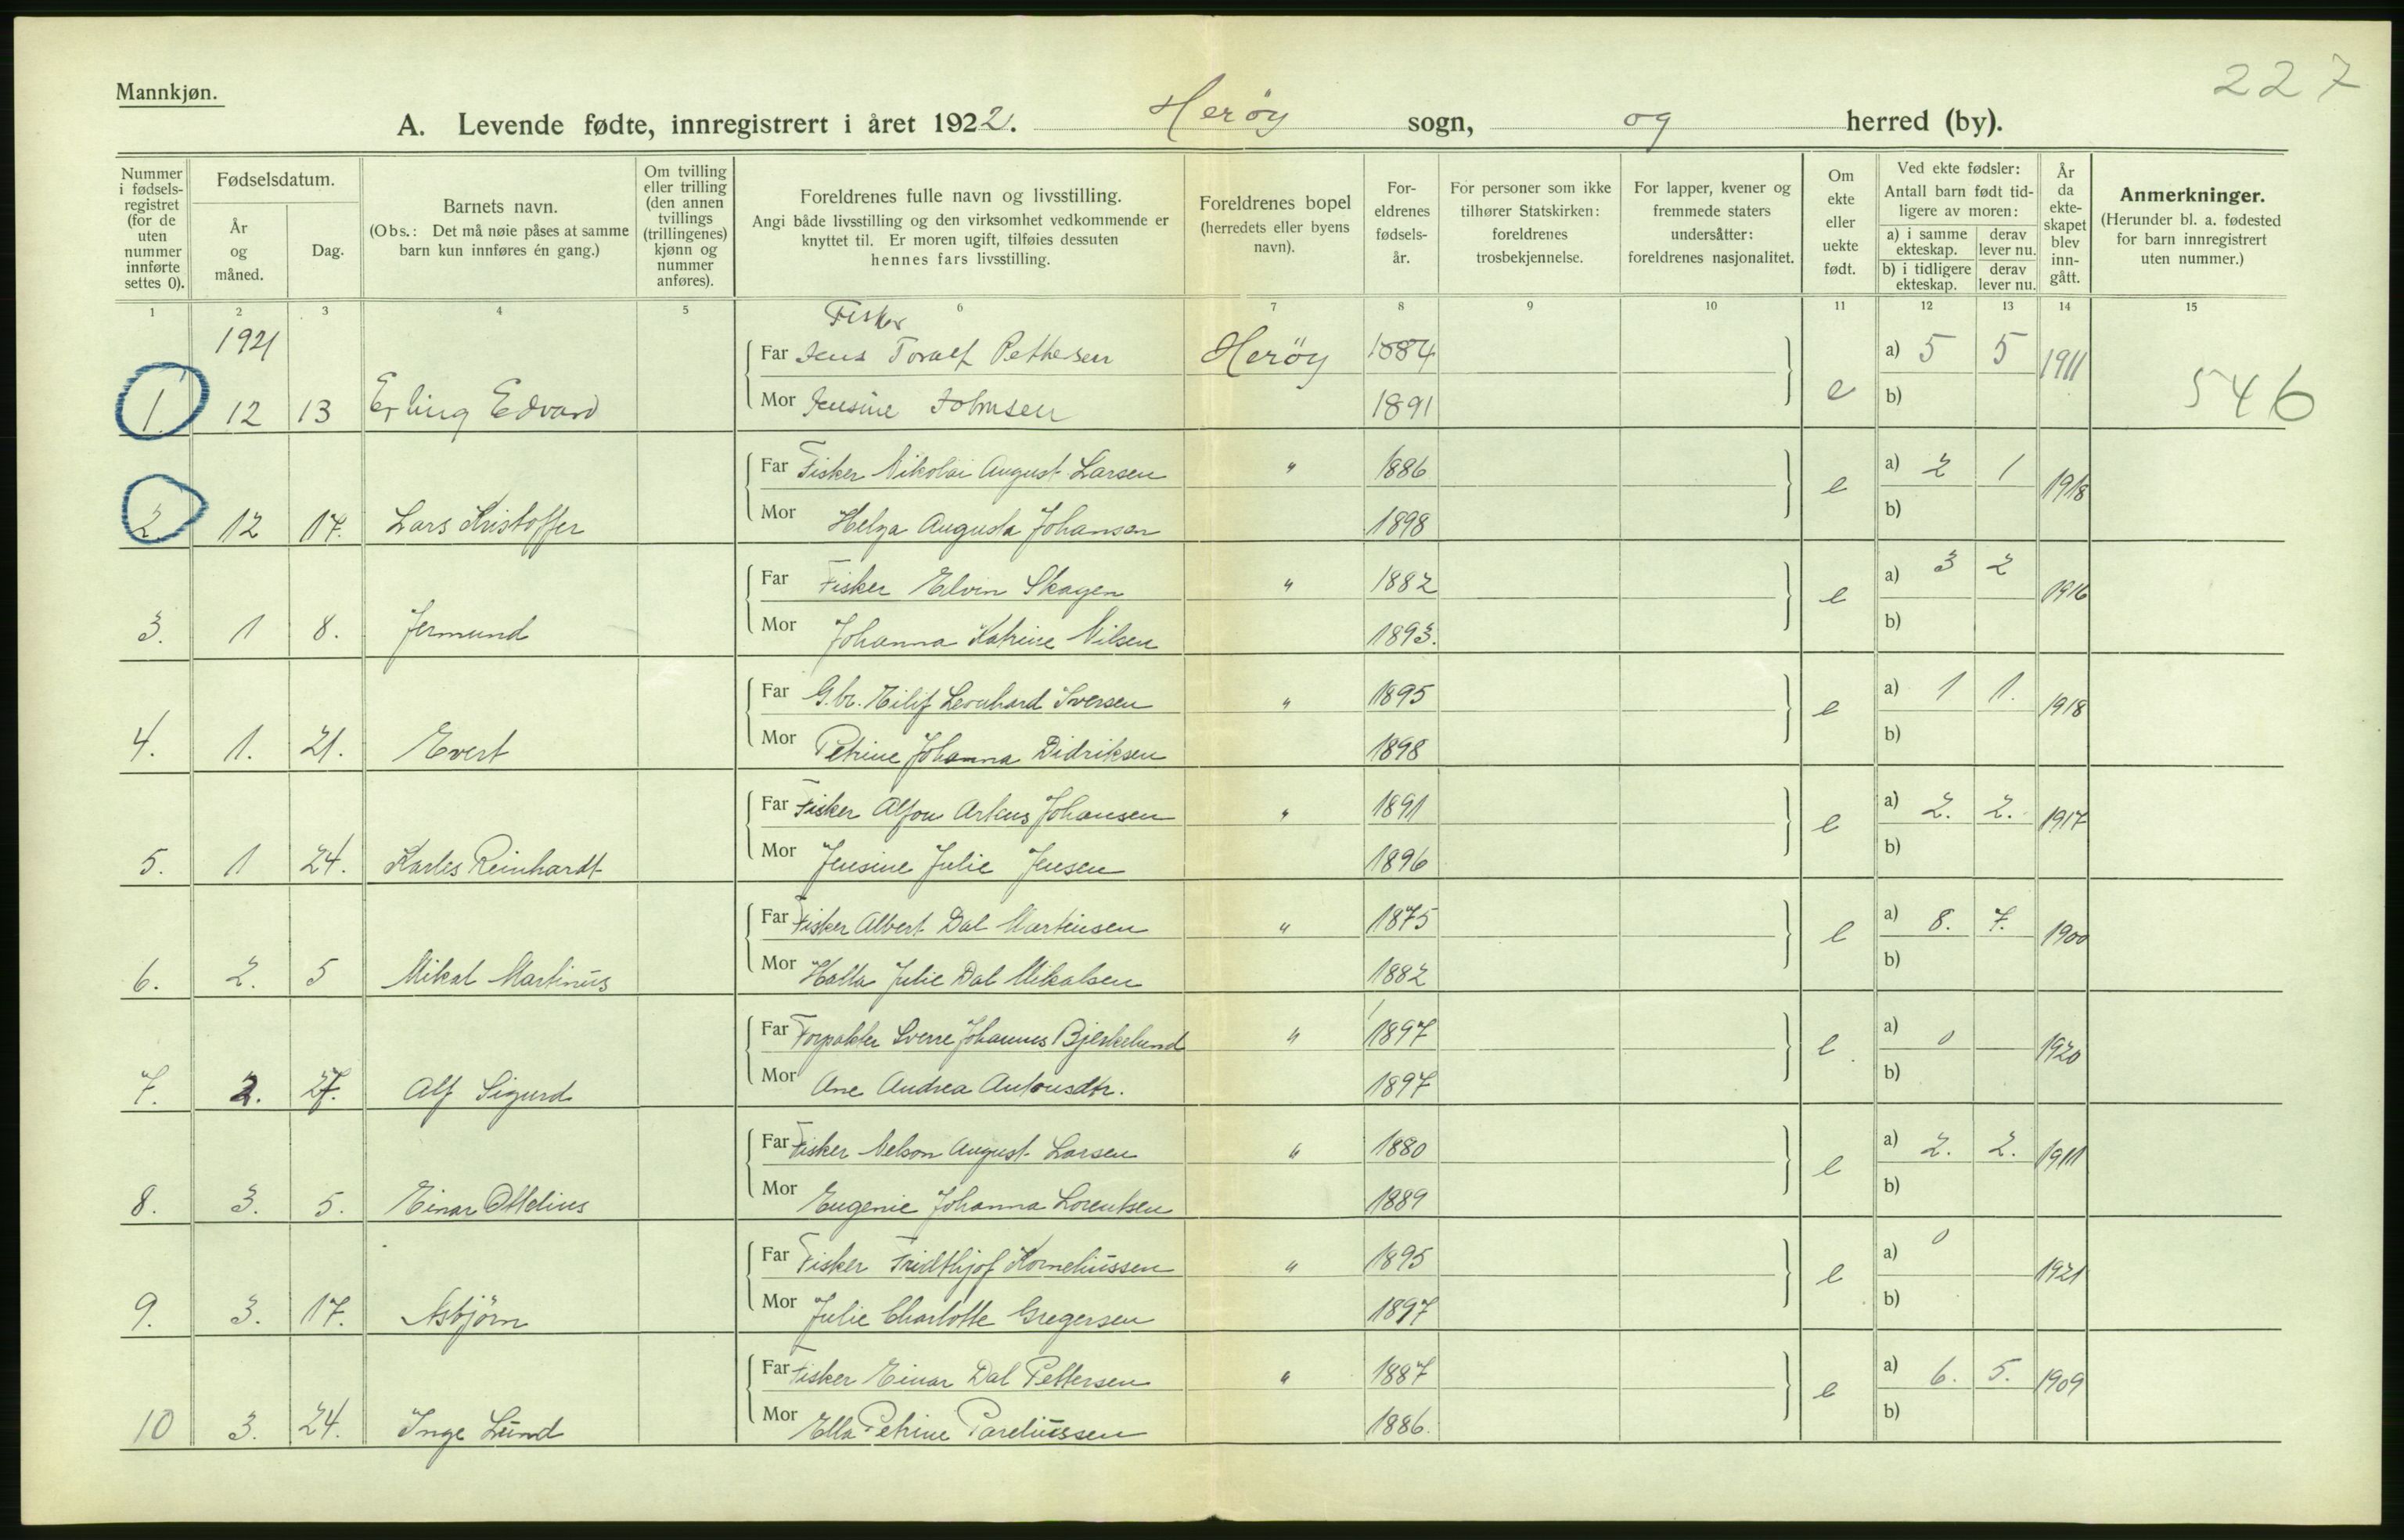 227
Mannkjøn.
A. Levende fødte, innregistrert i året 1922. Herøy sogn, og herred (by).
Nummer i fødsels-registret (for de uten nummer innførte settes 0).
Fødselsdatum.
År og måned.
Dag.
Barnets navn.
(Obs.: Det må nøie påses at samme barn kun innføres én gang.)
Om tvilling eller trilling (den annen tvillings (trillingenes) kjønn og nummer anføres).
Foreldrenes fulle navn og livsstilling.
Angi både livsstilling og den virksomhet vedkommende er knyttet til. Er moren ugift, tilføies dessuten hennes fars livsstilling.
Foreldrenes bopel (herredets eller byens navn).
For-eldrenes fødsels-år.
For personer som ikke tilhører Statskirken: foreldrenes trosbekjennelse.
For lapper, kvener og fremmede staters undersåtter: foreldrenes nasjonalitet.
Om ekte eller uekte født.
Ved ekte fødsler: Antall barn født tid-ligere av moren:
a) i samme ekteskap. derav lever nu.
b) i tidligere ekteskap. derav lever nu.
År da ekte-skapet blev inn-gått.
Anmerkninger.
(Herunder bl. a. fødested for barn innregistrert uten nummer.)
1 2 3 4 5 6 7 8 9 10 11 12 13 14 15
1921
Fisker
Far Jens Toralf Pettersen Herøy 1884 a) 5 5 1911
1 12 13 Erling Edvard Mor Jensine Johnsen 1891 e b) 546
Far Fisker Nikolai August Larsen " 1886 a) 2 1 1918
2 12 17. Lars Kristoffer Mor Helga Augusta Johansen 1898 e b)
Far Fisker Elvin Skagen " 1882 a) 3 2 1916
3. 1 8. Jermund Mor Johanna Katrine Nilsen 1893. e b)
Far G.br. Eilif Leonhard Iversen " 1895 a) 1 1. 1918
4. 1. 21. Evert Mor Petrine Johanna Didriksen 1898 e b)
Far Fisker Alfon Johansen " 1891 a) 2. 2. 1917
5. 1 24. Karles Reinhardt Mor Jensine Julie Jensen 1896 e b)
Far Fisker Albert Dal Martinsen " 1875 a) 8. 7. 1900
6. 2. 5 Mikal Martinus Mor Julie Dal Mikalsen 1882 e b)
Far Forpakter Sverre Johannes Bjerkelund " 1897 a) 0 1920
7. 2. 27. Alf Sigurd Mor Ane Andrea Antonsdtr. 1897 e b)
Far Fisker Nelson August Larsen " 1880 a) 2. 2. 1911
8. 3. 5. Einar Ottelius Mor Eugenie Johanna Lorentsen 1889 e b)
Far Fisker Fridthjof Korneliussen " 1895 a) 0 1921
9. 3. 17. Asbjörn Mor Julie Charlotte Gregersen 1897 e b)
Far Fisker Einar Dal Pettersen " 1887 a) 6. 5. 1909
10 3. 24. Inge Lund Mor Ella Petrine Pareliussen 1886. e b)